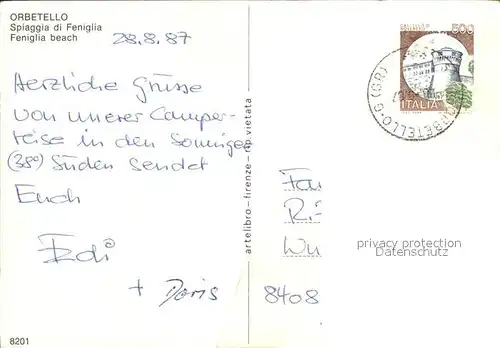 ORBETELLO
Spiaggia di Feniglia
Feniglia beach
28.8.87
Herzliche Grüsse
von unserer Camper-
reise in den sonnigen
(38°) Süden sendet
Euch
Edi
+ Doris
8201
artelibro - firenze - rip vietata
500
ITALIA
ORBETELLO-G (GR)
Fa
Ri
Wu
8408
privacy protection
oldthing.de